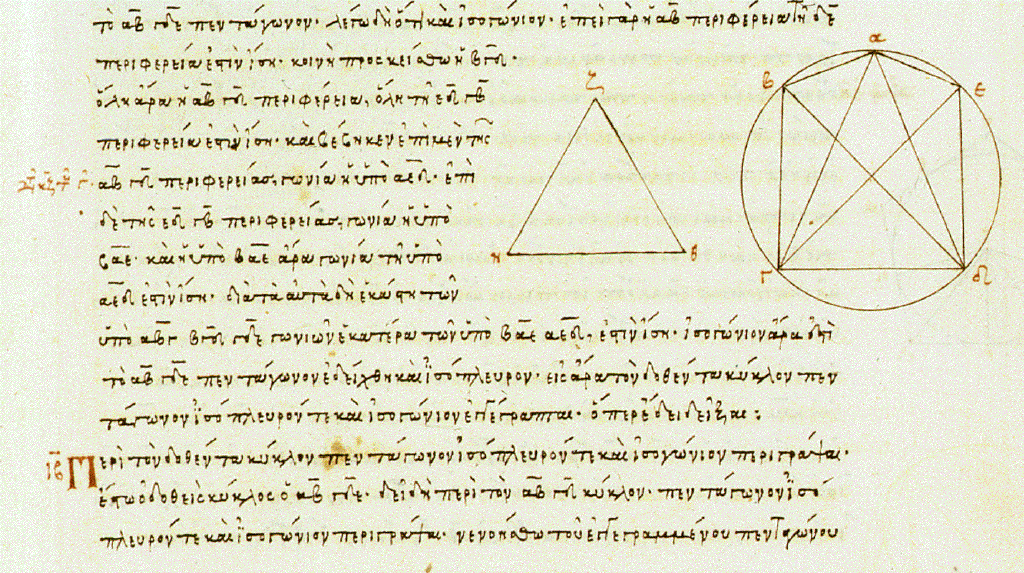 τὸ αβ γδε πεντάγωνον· λέγω δὴ ὅτι καὶ ἰσογώνιον· ἐπεὶ γὰρ ἡ αβ περιφέρεια τῆ δε
περιφερεία ἐστὶν ἴση· κοινὴ προσκείσθω ἡ βγδ·
ὅλη ἄρα ἡ αβ γδ περιφέρεια, ὅλη τῆ εδ γβ
περιφερεία ἐστὶν ἴση· καὶ βέβηκεν ἐπὶ μὲν τῆς
αβ γδ περιφερείας, γωνία ἡ ὑπὸ αεδ· ἐπὶ
δὲ τῆς εδ γβ περιφερείας, γωνία ἡ ὑπὸ
βαε· καὶ ἡ ὑπὸ βαε ἄρα γωνία τῆ ὑπὸ
αεδ ἐστὶν ἴση· διὰ τὰ αὐτὰ δὴ ἑκάστη τῶν
ὑπὸ αβγ βγδ γδε γωνιῶν ἑκατέρα τῶν ὑπὸ βαε αεδ, ἐστὶν ἴση· ἰσογώνιον ἄρα ἐστὶ
τὸ αβ γδε πεντάγωνον ἐδείχθη καὶ ἰσόπλευρον· εἰς ἄρα τὸν δοθέντα κύκλον πεν
τάγωνον ἰσόπλευρόν τε καὶ ἰσογώνιον ἐγγέγραπται· ὅπερ ἔδει δεῖξαι:
ιβ Περὶ τὸν δοθέντα κύκλον πεντάγωνον ἰσόπλευρόν τε καὶ ἰσογώνιον περιγράψαι·
ἔστω ὁ δοθεὶς κύκλος ὁ αβ γδε· δεῖ δὴ περὶ τὸν αβ γδ κύκλον· πεντάγωνον ἰσό
πλευρόν τε καὶ ἰσογώνιον περιγράψαι· νενοήσθω τοῦ ἐγγεγραμμένου πενταγώνου
ζ
η
θ
α
β
ε
γ
δ